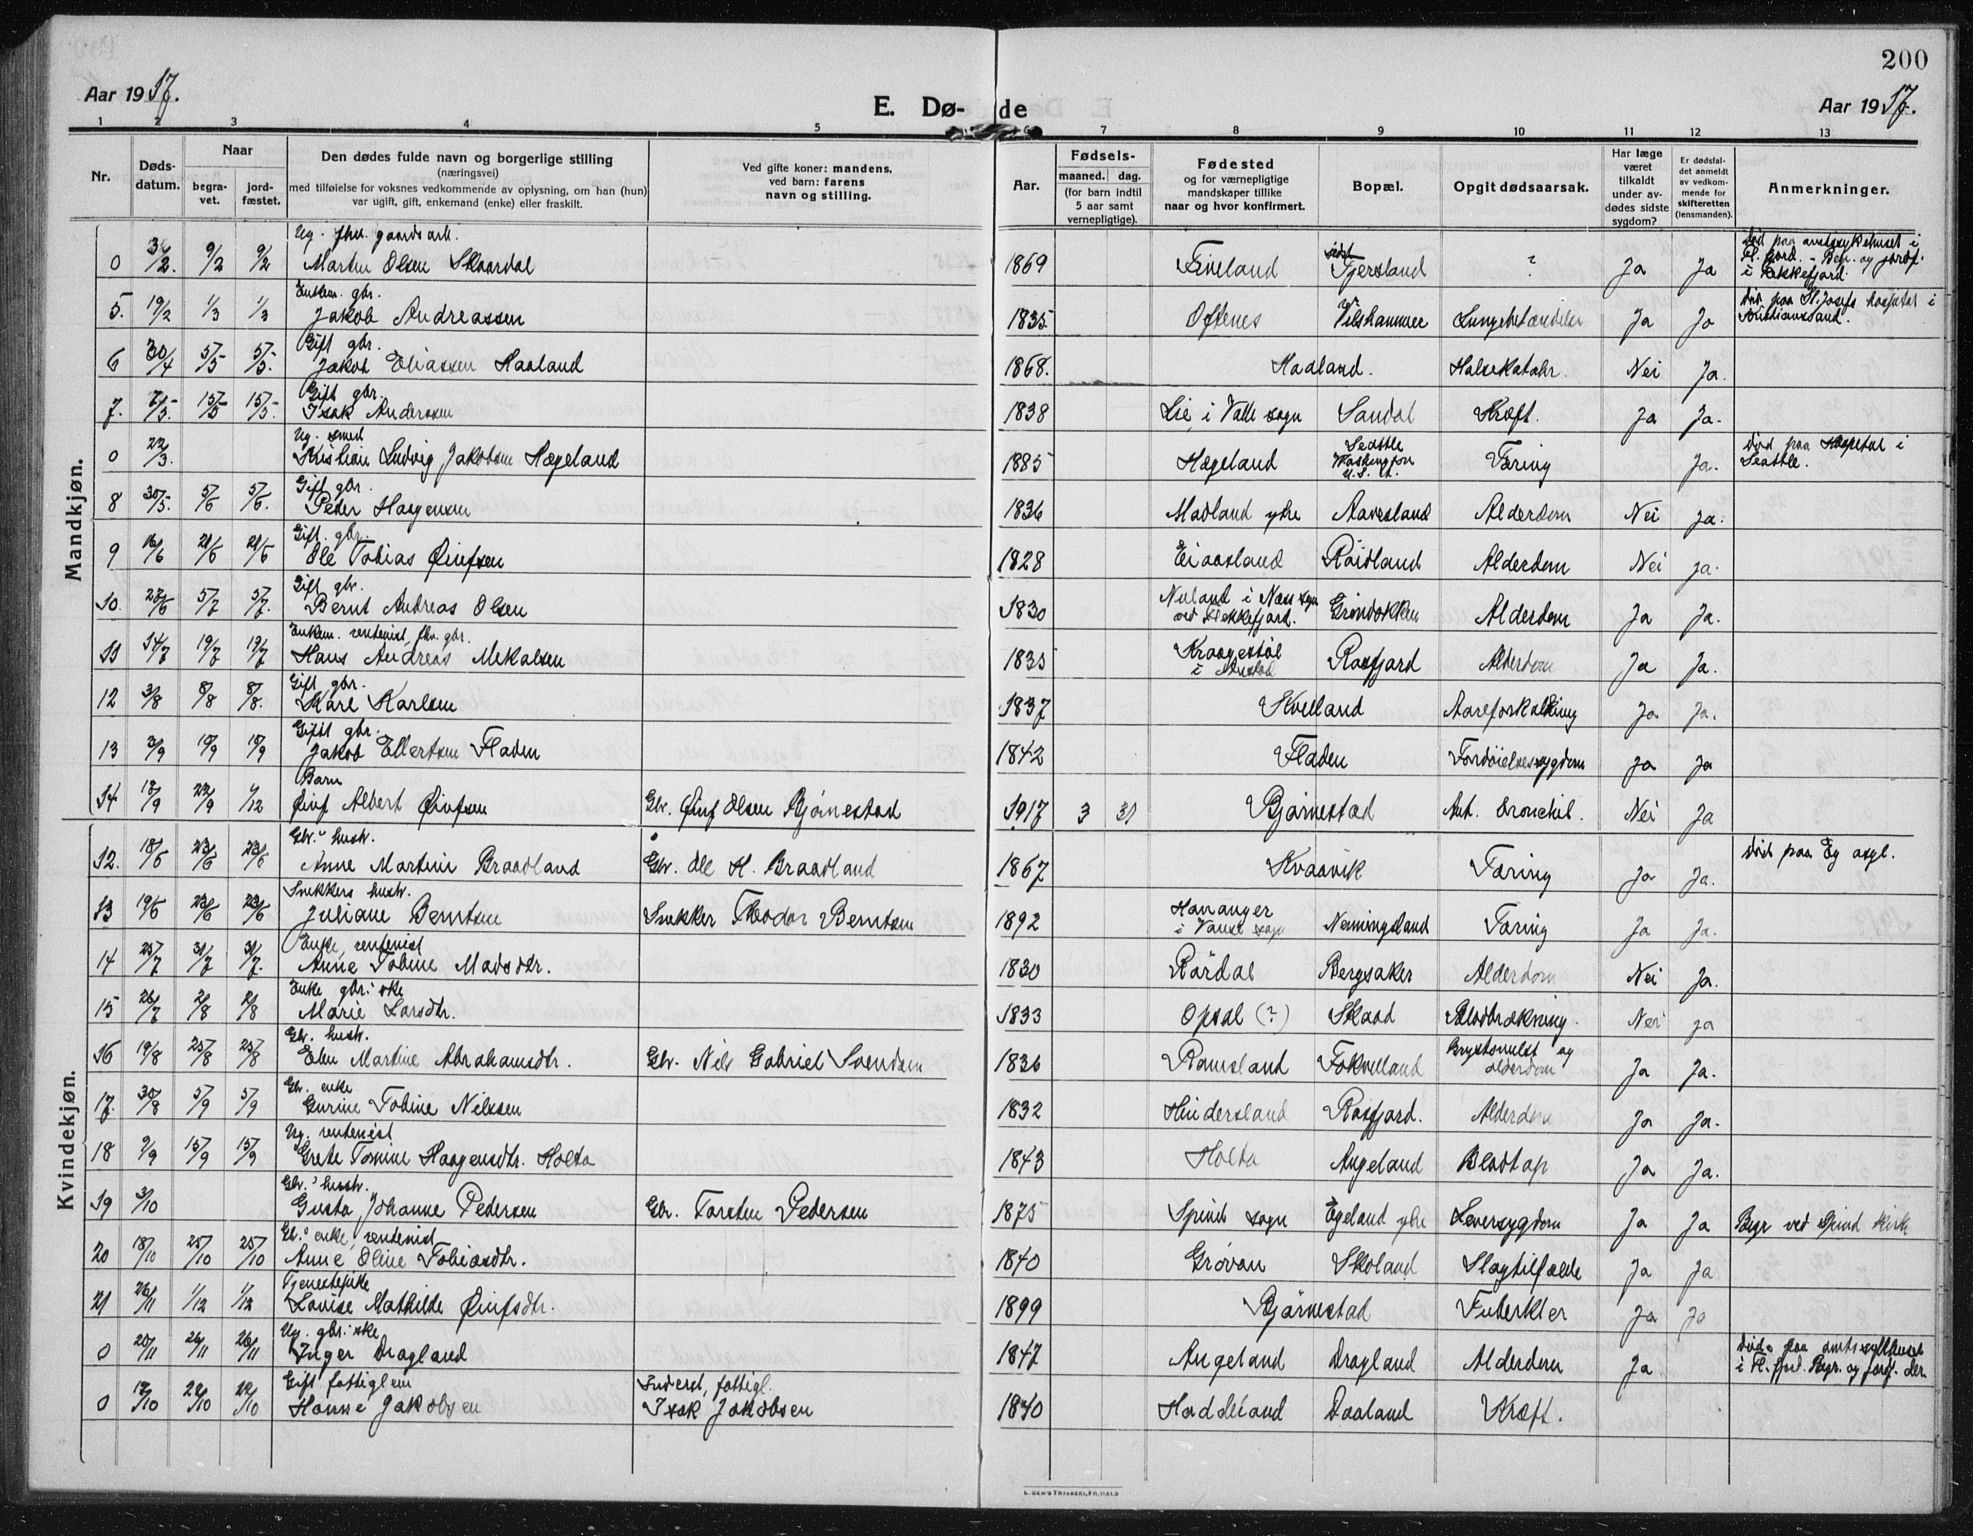 200
Aar 1917.
E. Dø- de
Aar 1917.
1 2 3 4 5 6 7 8 9 10 11 12 13
Nr.
Døds-datum.
Naar
begra-vet.
jord-fæstet.
Den dødes fulde navn og borgerlige stilling
(næringsvei)
med tilføielse for voksnes vedkommende av oplysning, om han (hun)
var ugift, gift, enkemand (enke) eller fraskilt.
Ved gifte koner: mandens,
ved barn: farens
navn og stilling.
Aar.
Fødsels-
maaned. dag.
(for barn indtil
5 aar samt
vernepligtige).
Fødested
og for værnepligtige
mandskaper tillike
naar og hvor konfirmert.
Bopæl.
Opgit dødsaarsak.
Har læge
været
tilkaldt
under av-
dødes sidste
sygdom?
Er dødsfal-
det anmeldt
av vedkom-
mende for
skifteretten
(lensmanden).
Anmerkninger.
Mandkjøn.
Ug. fhv. gaardsarb.
0 9/2 9/2 Martin Olsen Skaardal 1869 Fjersland ? Ja Ja
i Flekkefjord
Enkem. gbr.
5. 19/2 1/3 1/3 Jakob Andreassen 1835 Oftenes Vilshammer Lungebetændelse Ja Ja Død paa St. Josefs hospital i
Kristianssand.
Gift gbr.
6 30/4 5/5 5/5 Jakob Eliassen Haaland 1868. Haaland. Halsekatahr. Nei Ja.
Gift gbr.
7. 7/5 15/5 15/5 Isak Anderssen 1838 Lie i Valle sogn Sandal Kræft. Ja Ja.
Ug. smed
0 22/3 Kristian Ludvig Jakobsen Hægeland 1885 Hægeland Seattle Washington U.S. Tæring Ja. Død paa Hospital i
Seattle.
Gift gbr.
8 30/5 5/6 5/6 Peder Haagensen 1836 Madland ytre Aavesland Alderdom Nei Ja.
Gift. gbr.
9 16/6 21/6 21/6 Ole Tobias Øinfsen 1828 Eiaasland Røidland Alderdom Nei ja.
Gift gbr
10. 5/7 5/7 Bernt Andreas Olsen 1830 Nuland i Næs sogn
ved Flekkefjord. Grindokken Alderdom Ja Ja.
Enkem. rentenist, fhv. gbr.
11 14/7 19/7 19/7 Hans Andreas Mekalsen 1835 Kraagestøl
i Rosfjord Alderdom Ja Ja.
Gift gbr.
12 3/8 8/8 8/8. Karl Karlsen 1837 Kvelland Aareforkalkning Ja Ja.
Gift gbr.
13 3/9 10/9 10/9 Jakob Ellertsen Fladen 1842 Fladen Fordøielsessygdom Ja Ja
Barn
14 17/9 22/9 4/12 Øinf Albert Øinfsen Gbr. Øinf Olsen Bjørnestad 1917 3 31 Bjørnestad Ak. bronchit. Nei Ja
Kvindekjøn.
Gbr. hustr.
12. 18/6 23/6 23/6 Anne Martine Braadland Gbr. Ole H. Braadland 1867 Kvaavik Tæring Ja Ja. Død paa Eg asyl.
Snekkers hustr.
13 19/6 23/6 23/6 Juliane Berntsen Snekker Theodor Berntsen 1892 Hananger
i Vanse sogn Nenningsland Tæring Ja Ja.
Enke, rentenist
14 25/7 31/7 31/7. Anne Tobine Madsdtr. 1830 Rørdal Bergsaker Alderdom Nei Ja.
Enke gbr.ske
15 26/7 2/8 2/8 Marie Larsdtr. 1833 Opsal (?) Skaad Blodtrækning. Nei ja
Gbr. hustr.
16 19/8 25/8 25/8 Elen Martine Abrahamsdtr. Gbr. Nils Gabriel Svendsen 1836 Ramsland Fokvelland Brystsvulst og
alderdom Ja Ja.
Gbr. enke
17. 30/8 5/9 5/9 Gurine Tobine Nilssen 1832 Hindersland Rosfjord. Alderdom Ja Ja.
Ug. rentenist
18 9/9 15/9 15/9 Grete Tomine Haagensdtr. Holta 1843 Holta Angeland Blodtap Ja Ja.
Gbr. hustr.
19 3/10 Gusta Johanne Pedersen Gbr. Torsten Pedersen 1875 Spind sogn Egeland ytre Leversygdom Ja Ja Begr ved Spind kirk
Gbr. enke, rentenist
20 18/10 25/10 25/10 Anne Oline Tobiasdtr. 1840 Grøvan Skoland Slagtilfælde Ja Ja
Tjenestepike
21 26/11 1/12 1/12 Lovise Mathilde Øinfsdtr. 1899 Bjørnestad Tuberkler Ja Ja
Ug. gbr.ske
0 20/11 26/11 26/11 Inger Dragland 1847 Angeland Dragland Alderdom Ja Død paa amtssykehuset
i Fl.fjord. Begr. og jordf. der
Gift fattiglem
0 22/10 22/10 Hanne Jakobsen Inderst, fattigl.
Isak Jakobsen 1840 Haddeland Daaland Kræft.